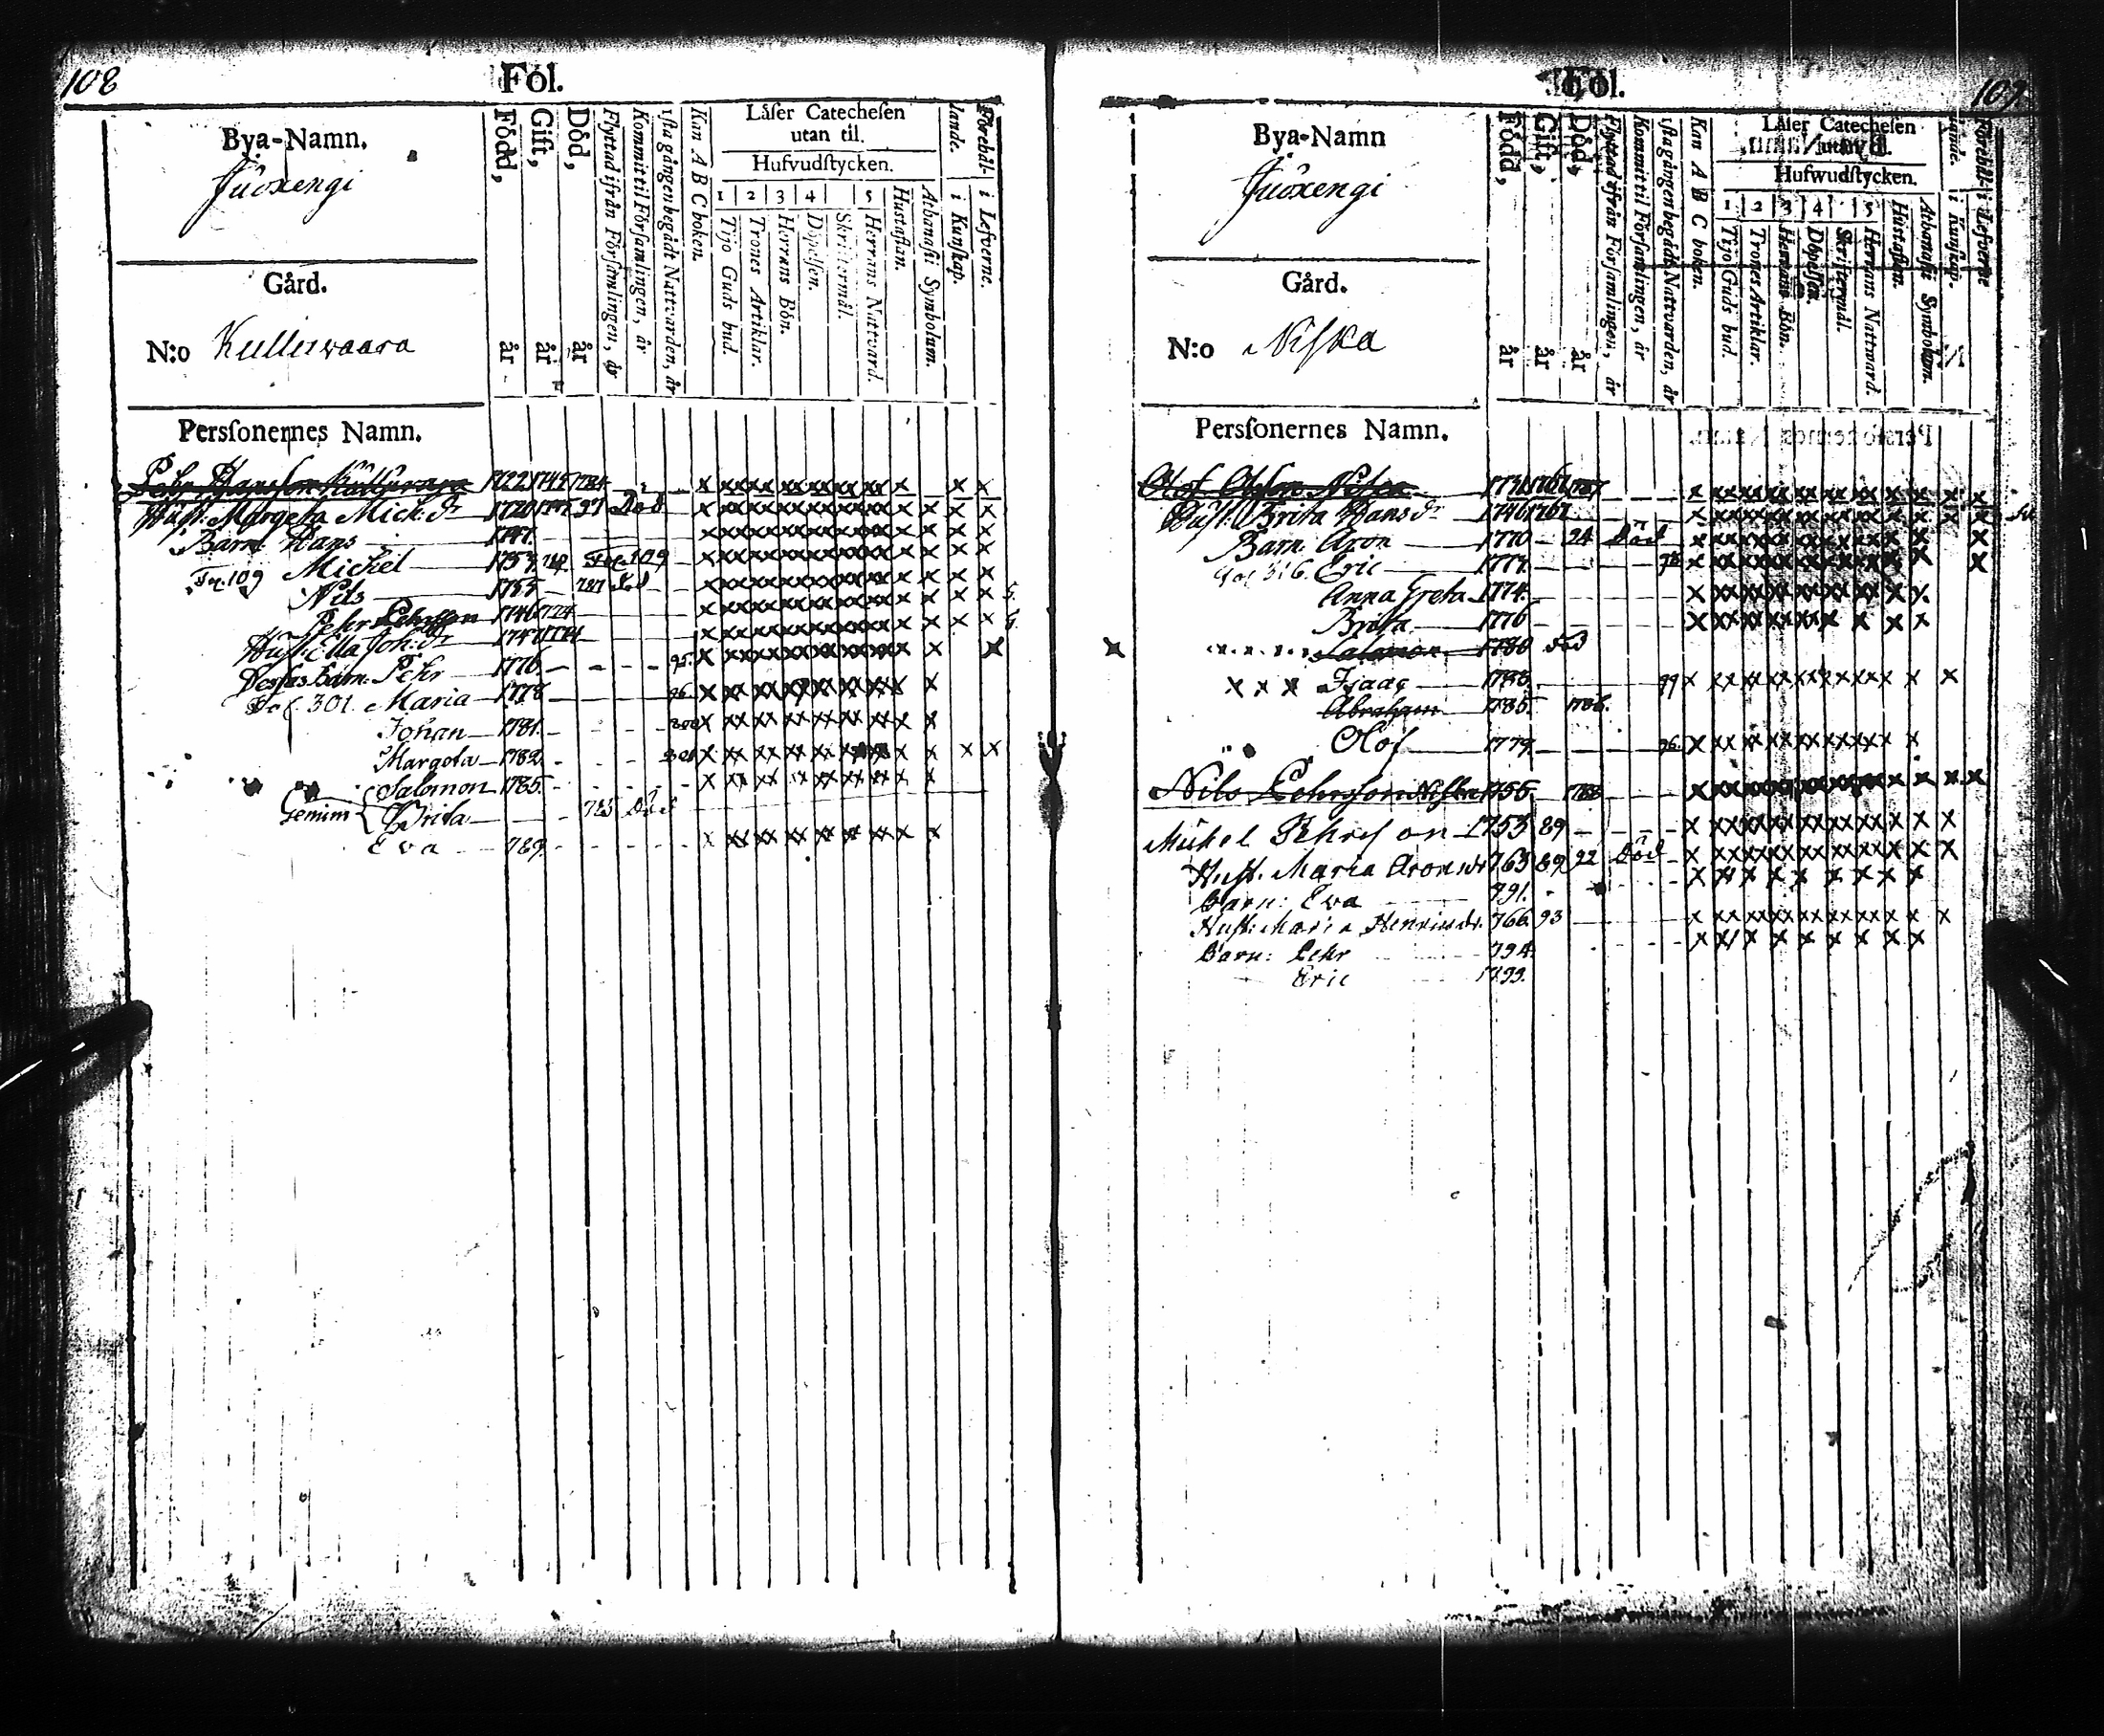 108
Fol.
Bya-Namn.
Juoxengi
Gård.
N:o Kulluvaara
Personernes Namn.
Född, år
Gift, år
Död, år
Flyttad ifrån Församlingen, år
Kommit til Församlingen, år
1sta gången begådt Nattvarden, år
Kan A B C boken.
Låser Catechesen
utan til.
Hufvudstycken.
1 2 3 4 5
Tijo Guds bud.
Trones Artiklar.
Herrans Bön.
Döpelsen.
Skriftermål.
Herrans Nattvard.
Hustaflan.
Athanasii Symbolum.
Förehål-
lande.
i Kunskap.
i Lefverne.
Pehr Hansson Kulluvaara 1722 1745 1784
Hust. Margeta Mich. dr 1720 1745 97 Död
Barn Hans 1747.
Fol. 109 Michel 1753 Fol. 109
Nils 1755 787 Död
Pehr Pehrsson 1746 1774
Hust. Ella Joh. dr 1747 1774
Dessas Barn. Pehr 1776 95.
Fol. 301. Maria 1778 96
Johan 1781.
Margeta 1782
Gemini Salomon 1785.
Brita 785 Död
Eva 789.
109.
Fol.
Bya-Namn
Juoxengi
Gård.
N:o Niska
Personernes Namn.
Född, år
Gift, år
Död, år
Flyttad ifrån Församlingen, år
Kommit til Församlingen, år
1sta gången begådt Nattvarden, år
Kan A B C boken.
Låser Catechesen
utan til.
Hufwudstycken.
1 2 3 4 5
Tijo Guds bud.
Trones Artiklar.
Herrans Bön.
Döpelsen.
Skriftermål.
Herrans Nattward.
Hustaflan.
Athanasii Symbolum.
Förehål-
lande.
i Kunskap.
i Lefverne
Olof Olsson Niska 1767
Hust. Brita Hans dr 1746 1767
Barn. Aron 1770 94 Död
Fol 316. Eric 1771.
Anna Greta 1774.
Brita 1776
Salomon 1780 Död
Isaac 1783 99
Abraham 1785. 1786.
Olof 1779. 96.
Nils Pehrsson Niska 1755. 1788
Michel Pehrsson 1753 89
Hust. Maria Arons dr 763 89 92 Död
Barn: Eva 791.
Hust: Maria Henricsdr. 766 93
Barn: Pehr 794.
Eric 1799.